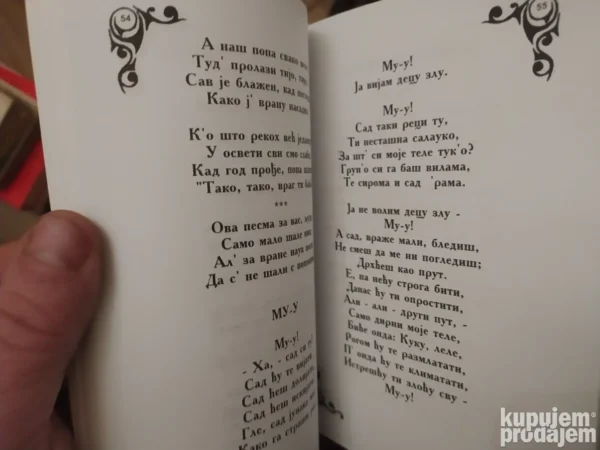 54
А наш попа свако
Туд' пролази тијо,
Сав је блажен, кад
Како ј' врану
К'о што рекох већ
У освети сви смо
Кад год прође, попа
"Тако, тако, враг ти
***
Ова песма за вас,
Само мало шале
Ал' за вране наук
Да с' не шали с
МУ-У
Му-у!
- Ха, - сад си
Сад ћу те
Сад ћеш
Сад ћеш
Гле, сад
Како га страни
55
Му-у!
Ја вијам децу злу.
Му-у!
Сад таки реци ту,
Ти несташна салауко,
За шт' си моје теле тук'о?
Груп'о си га баш вилама,
Те сирома и сад 'рама.
Ја не волим децу злу -
Му-у!
А сад, враже мали, бледиш,
Не смеш да ме ни погледиш;
Дрхћеш као прут.
Е, па нећу строга бити,
Данас ћу ти опростити,
Аля - али - други пут, -
Само дирни моје теле,
Биће онда: Куку, леле,
Рогом ћу те размлатати,
П' онда ћу те климатати,
Истрешћу ти злоћу сву -
Му-у!
kupujem
prodajem